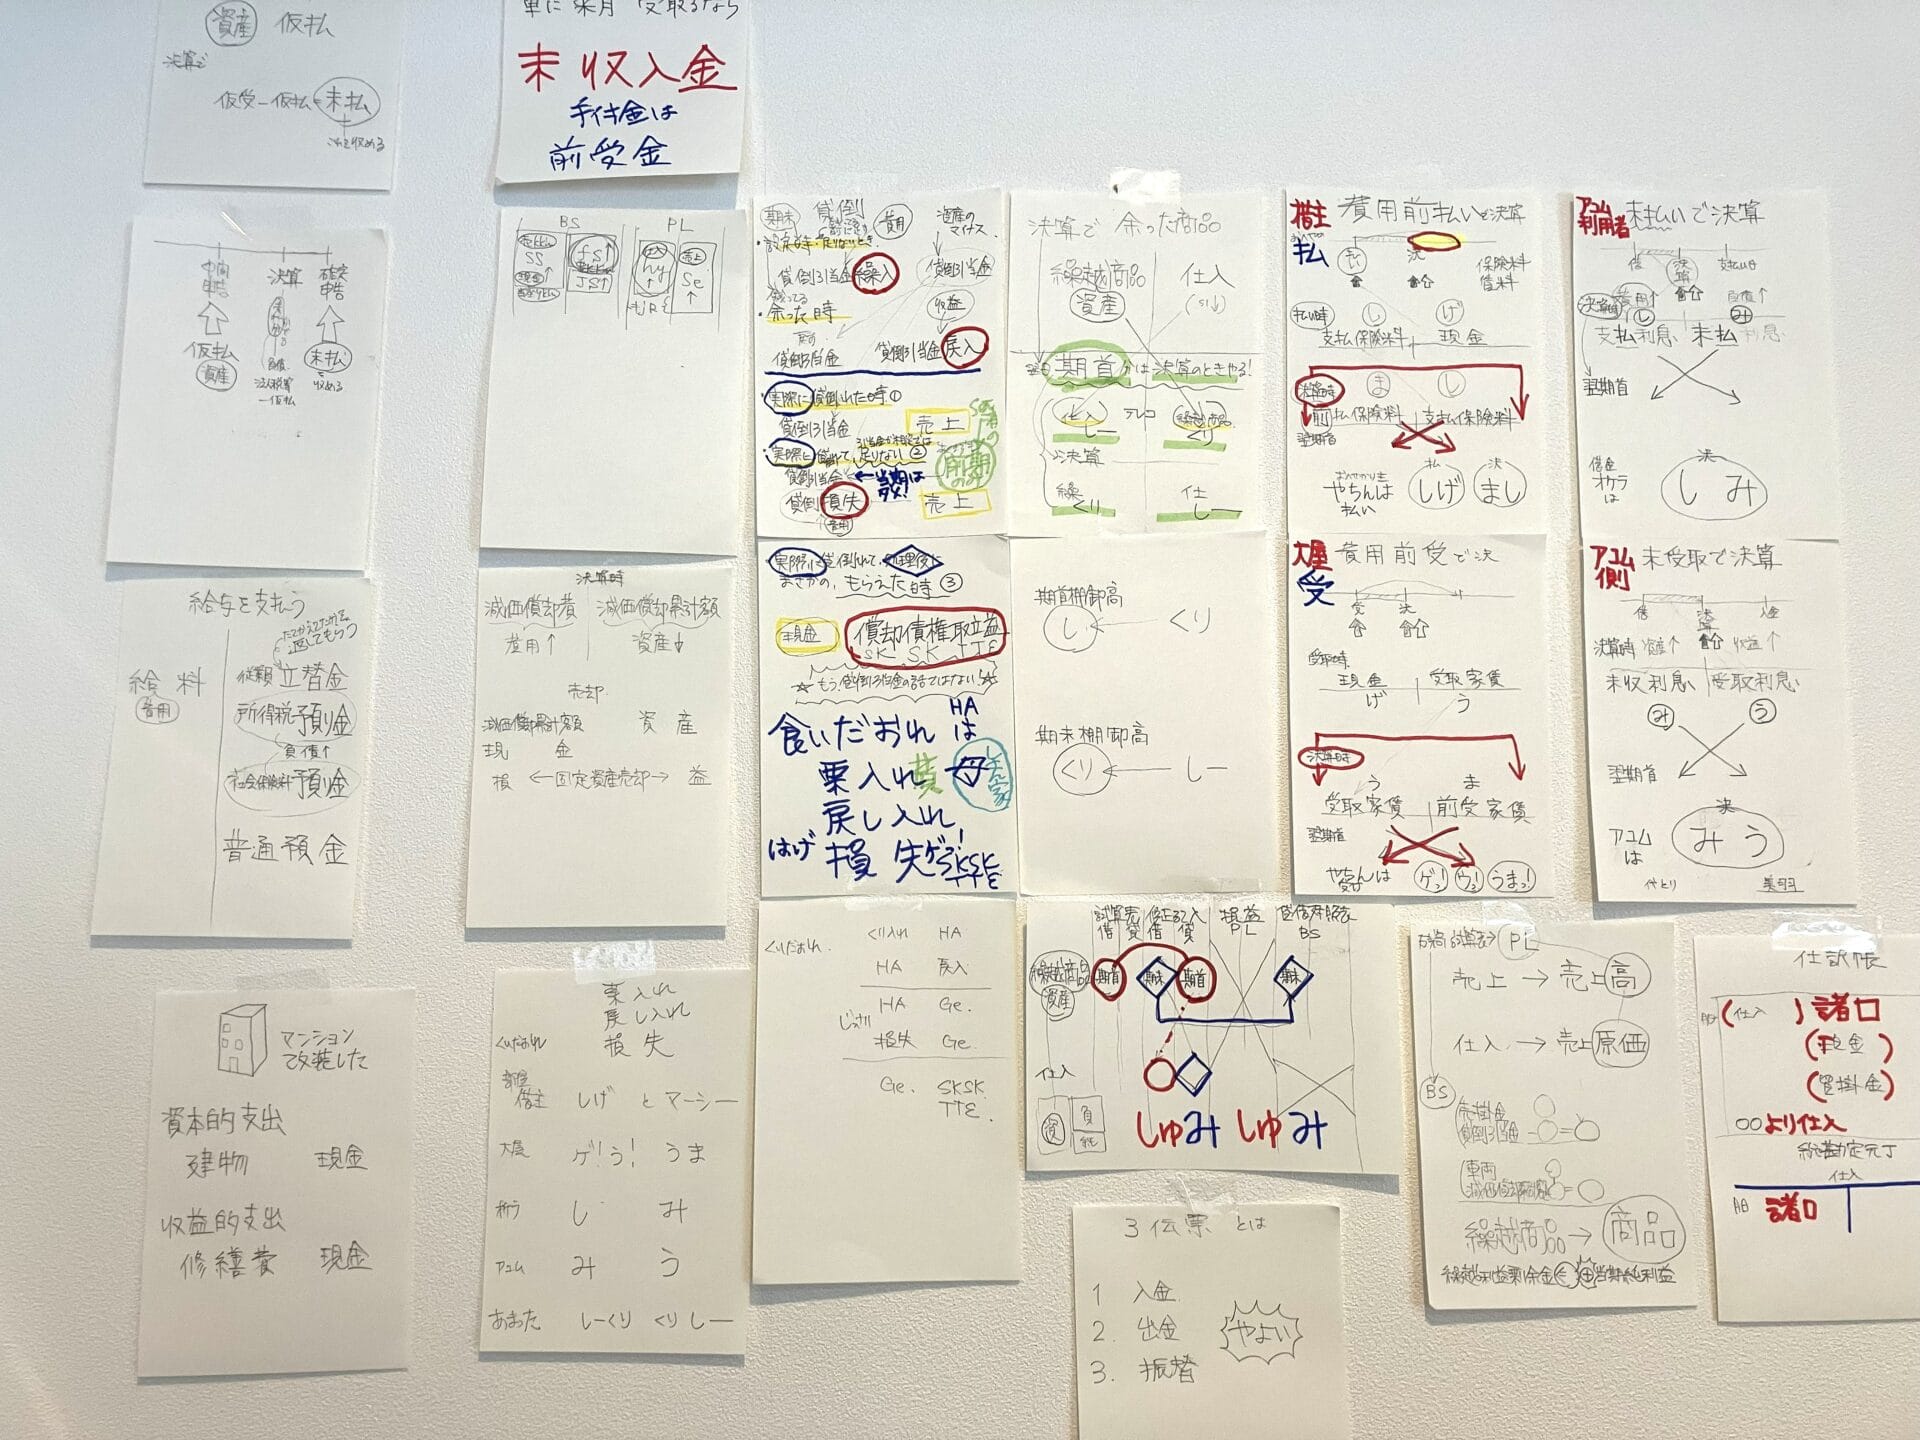 資産 仮払
決算で
仮受-仮払=未払
これを収める
単に来月 受取るなら
未収入金
手付金は
前受金
中間申告
決算
確定申告
仮払
資産
法人税等
-仮払
未払
収める
BS
PL
SS
JS↑
hy
Se
期末
貸倒
費用
資産のマイナス
貸倒引当金 繰入
貸倒引当金
収益
・余った時
貸倒引当金
貸倒引当金 戻入
・実際に貸倒れた時①
貸倒引当金
売上
・実際に貸倒れて、足りない②
貸倒引当金
←当期はダメ!
前期のみ
貸倒損失
費用
売上
決算で 余った商品
繰越商品
仕入
資産
期首かは決算のときやる!
仕入
テレコ
繰越商品
しー
くり
決算
繰
仕
くり
しー
借主
費用前払いで決算
払
決
保険料
借料
払い時
し
げ
支払保険料
現金
決算時
ま
し
前払保険料
支払保険料
翌期首
やちんは
払い
払
しげ
決
まし
アコム
利用者
未払いで決算
借
決算
支払日
決算時
費用↑
負債↑
し
み
支払利息
未払利息
翌期首
借金
オケラ
は
決
しみ
給与を支払う
給料
費用
従業員立替金
所得税預り金
負債↑
社会保険料預り金
普通預金
決算時
減価償却費
減価償却累計額
費用↑
資産↓
売却
減価償却累計額
資産
現金
損 ←固定資産売却→ 益
・実際に貸倒れて、処理後に
まさかの、もらえた時③
現金
償却債権取立益
SK SK TTE
☆もう、貸倒引当金の話ではない!☆
HA
食いだおれ は
栗入れ 母
戻し入れ
はげ 損失ゲッ!
SKSK
TTE
期首棚卸高
し ← くり
期末棚卸高
くり ← しー
大屋
費用前受で決
受
受
決
受取時
現金
受取家賃
げ
う
決算時
う
ま
受取家賃
前受家賃
翌期首
やちんは
ゲッ! うっ! うまっ!
アコム
側
未受取で決算
借
決算
入金
決算時 資産↑ 収益↑
未収利息
受取利息
み
う
翌期首
決
アコム
は
みう
やとり
美羽
マンション
改装した
資本的支出
建物 現金
収益的支出
修繕費 現金
栗入れ
戻し入れ
くいだおれ 損失
部屋
借主 しげ と マーシー
大屋 ゲ!う! うま
オケラ し み
アコム み う
あまった しーくり くりしー
くいだおれ
くり入れ HA
HA 戻入
HA Ge.
じっさい
損失 Ge.
Ge. SKSK
TTE.
試算表
借 貸
修正記入
借 貸
損益
PL
貸借対照表
BS
繰越商品
資産
期首
期末
期首
期末
仕入
資
負
純
しゅみ しゅみ
3伝票とは
1 入金
2. 出金
3. 振替
やよい
PL
売上 → 売上高
仕入 → 売上原価
BS
売掛金
貸倒引当金
車両
減価償却累計額
繰越商品 → 商品
繰越利益剰余金 当期純利益
仕訳帳
(仕入) 諸口
(現金)
(買掛金)
○○より仕入
総勘定元丁
仕入
諸口